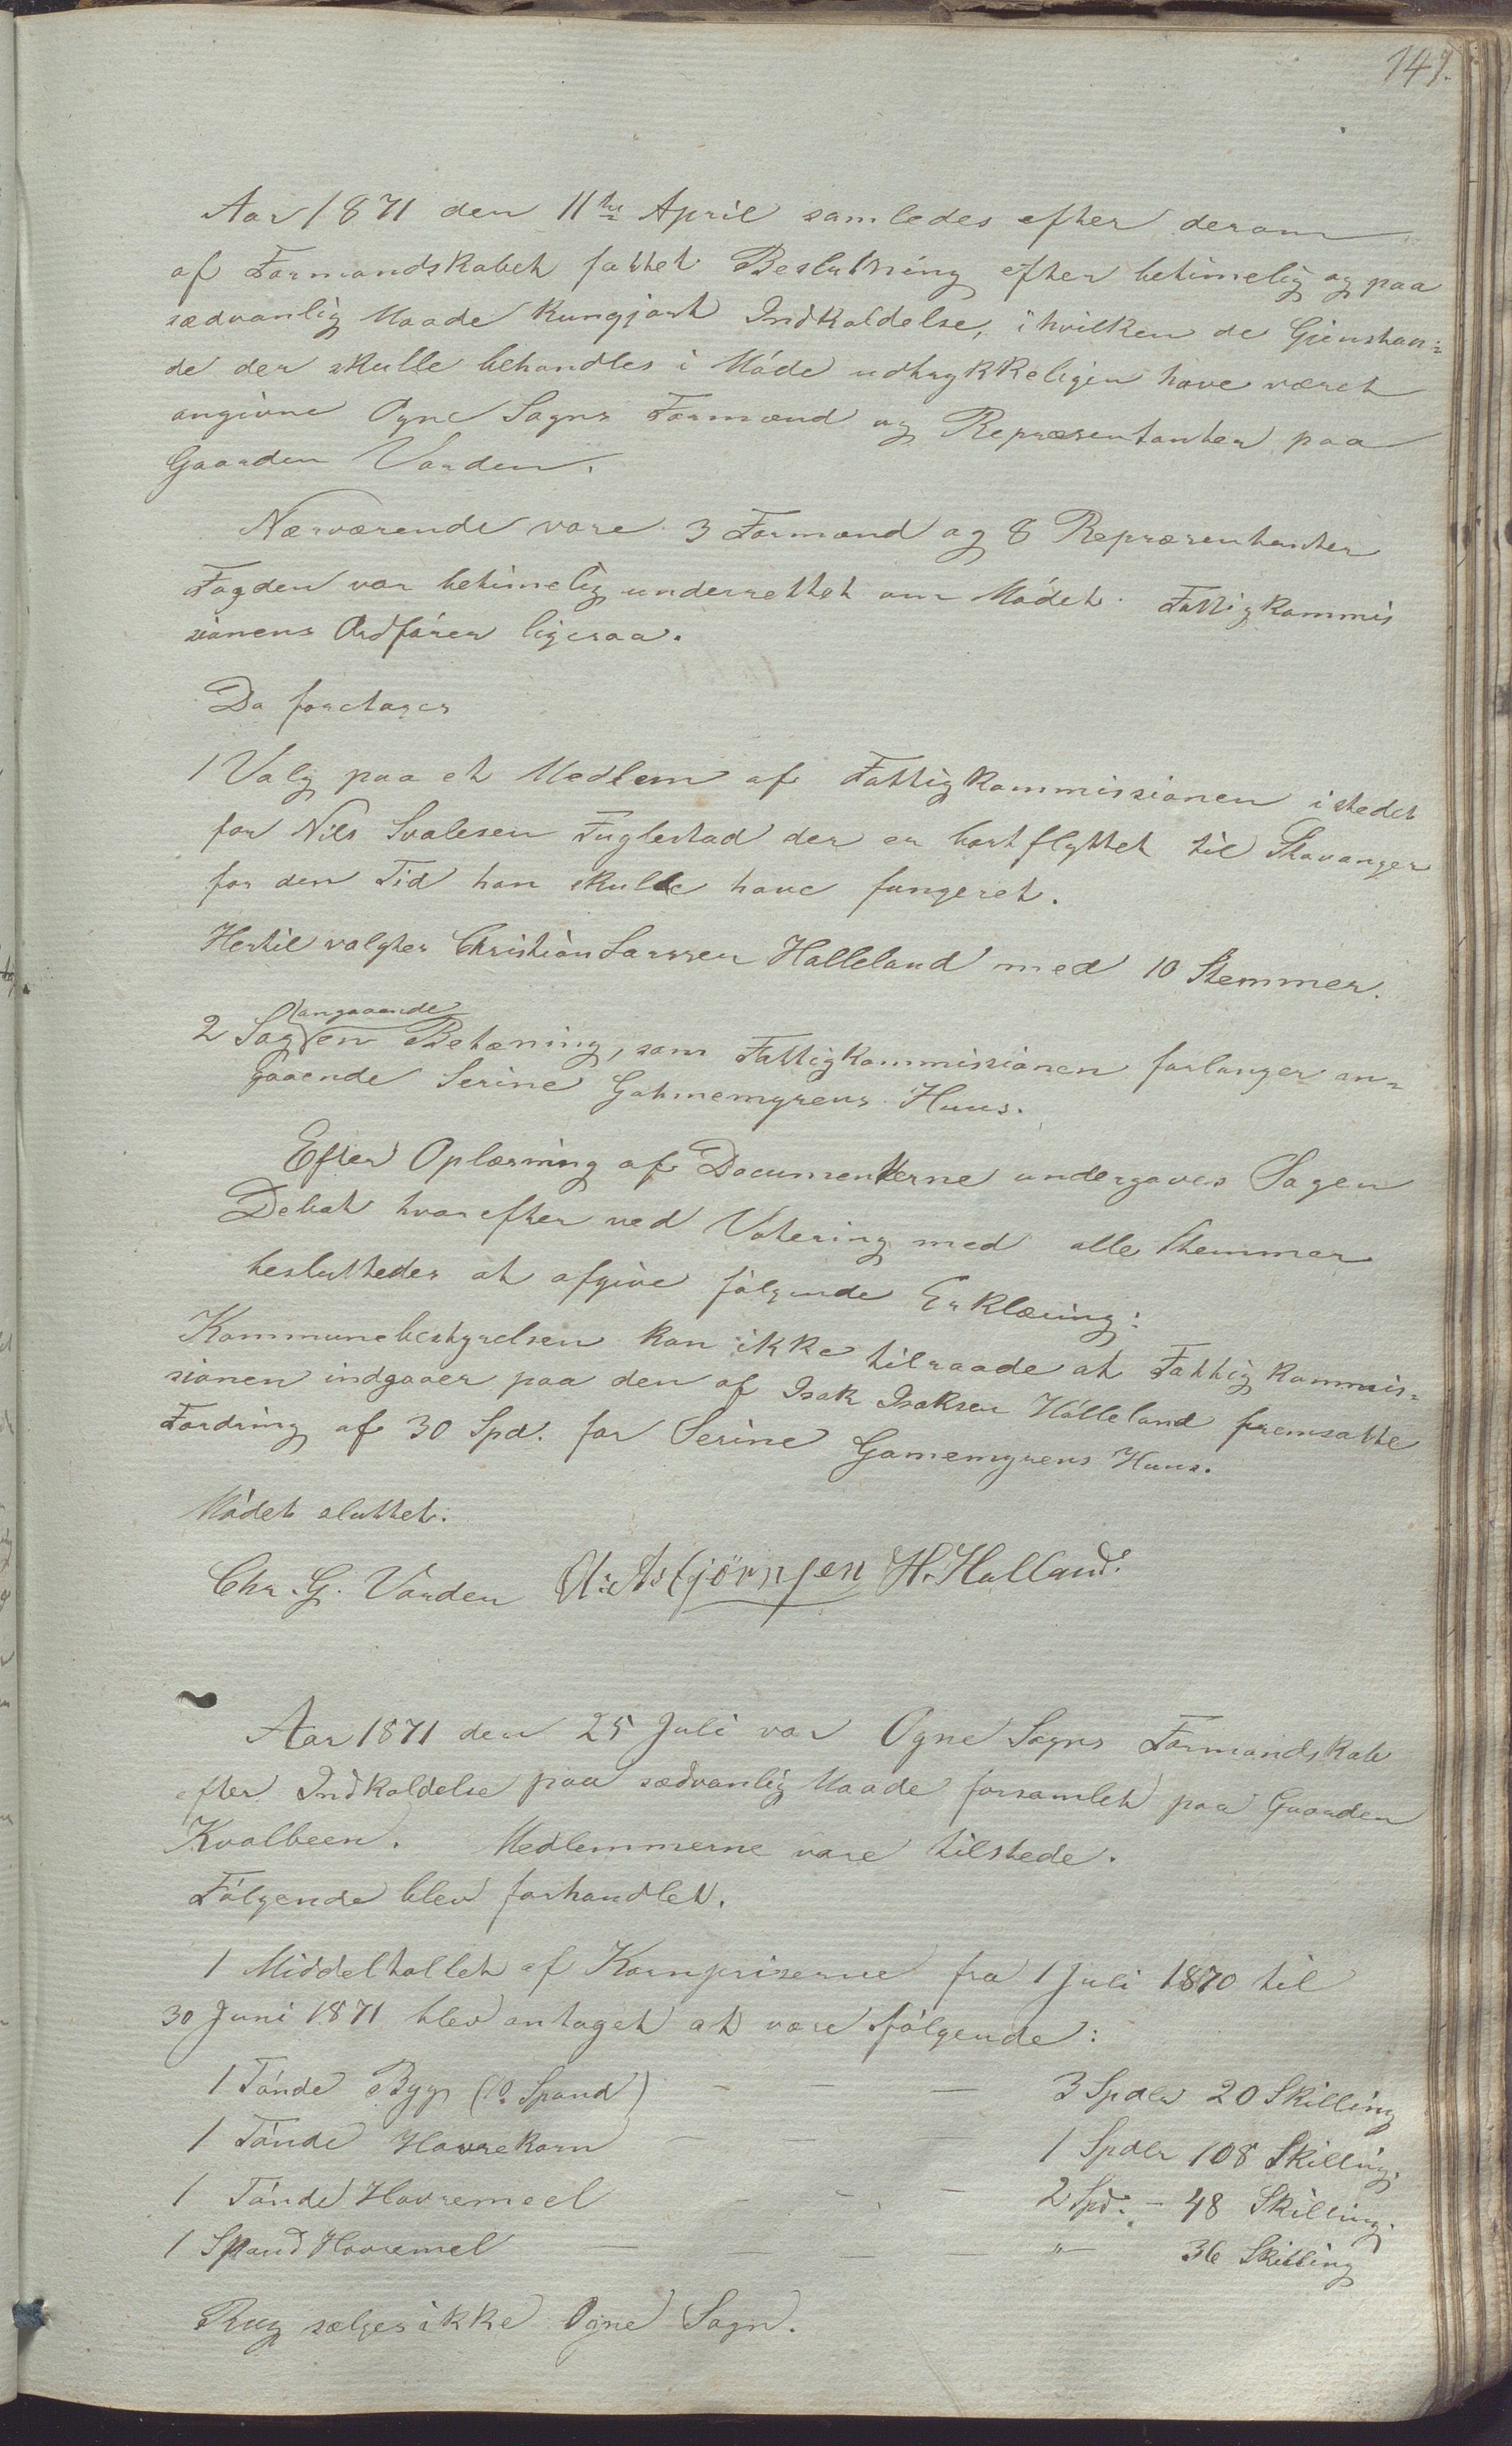 147.
Aar 1871 den 11te April samledes efter derom
af Formandskabet fattet Beslutning efter betimelig og paa
sædvanlig Maade kungjort Indkaldelse, i hvilken de Gjenstan=
de der skulle behandles i Møde udtrykkeligen have været
angivne Ogne Sogns Formænd og Repræsentanter paa
Gaarden Varden.
Nærværende vare 3 Formænd og 8 Repræsentanter
Fogden var betimelig underrettet om Mødet. Fattigkommis
sionens Ordfører ligesaa.
Da foretages
1 Valg paa et Medlem af Fattigkommissionen istedet
for Nils Svalesen Fuglestad der er bortflyttet til Stavanger
for den Tid han skulde have fungeret.
Hertil valgtes Christian Larssen Halleland med 10 Stemmer.
angaaende
2 Sag en Betæning, som Fattigkommissionen forlanger an=
gaaende Serine Gahmemyrens Huus.
Efter Oplæsning af Documenterne undergaves Sagen
Debat hvorefter ved Votering med alle Stemmer
besluttedes at afgive følgende Erklæring:
Kommunebestyrelsen kan ikke tilraade at Fattigkommis=
sionen indgaaer paa den af Isak Isaksen Hølleland fremsatte
Fordring af 30 Spd. for Serine Gamemyrens Huus.
Mødet sluttet.
Chr. G. Varden A. Asbjörnsen H. Halland.
Aar 1871 den 25 Juli var Ogne Sogns Formandskab
efter Indkaldelse paa sædvanlig Maade forsamlet paa Gaarden
Kvalbeen. Medlemmerne vare tilstede.
Følgende blev forhandlet.
1 Middeltallet af Kornpriserne fra 1 Juli 1870 til
30 Juni 1871 blev antaget at være følgende:
1 Tønde Byg (10 Spand) - - - 3 Spdlr 20 Skilling
1 Tønde Havrekorn - - - 1 Spdlr 108 Skilling.
1 Tønde Havremeel - - - 2 Spd. - 48 Skilling.
1 Spand Havremel - - - - " 36 Skilling
Rug sælges ikke Ogne Sogn.